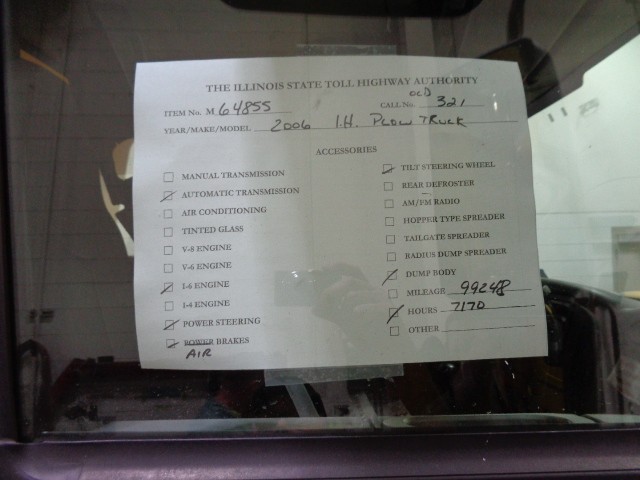 THE ILLINOIS STATE TOLL HIGHWAY AUTHORITY
OLD
ITEM No. M 64855 CALL No. 321
YEAR/MAKE/MODEL 2006 I.H. PLOW TRUCK
ACCESSORIES
MANUAL TRANSMISSION
AUTOMATIC TRANSMISSION
AIR CONDITIONING
TINTED GLASS
V-8 ENGINE
V-6 ENGINE
I-6 ENGINE
I-4 ENGINE
POWER STEERING
POWER BRAKES
AIR
TILT STEERING WHEEL
REAR DEFROSTER
AM/FM RADIO
HOPPER TYPE SPREADER
TAILGATE SPREADER
RADIUS DUMP SPREADER
DUMP BODY
MILEAGE 99248
HOURS 7170
OTHER